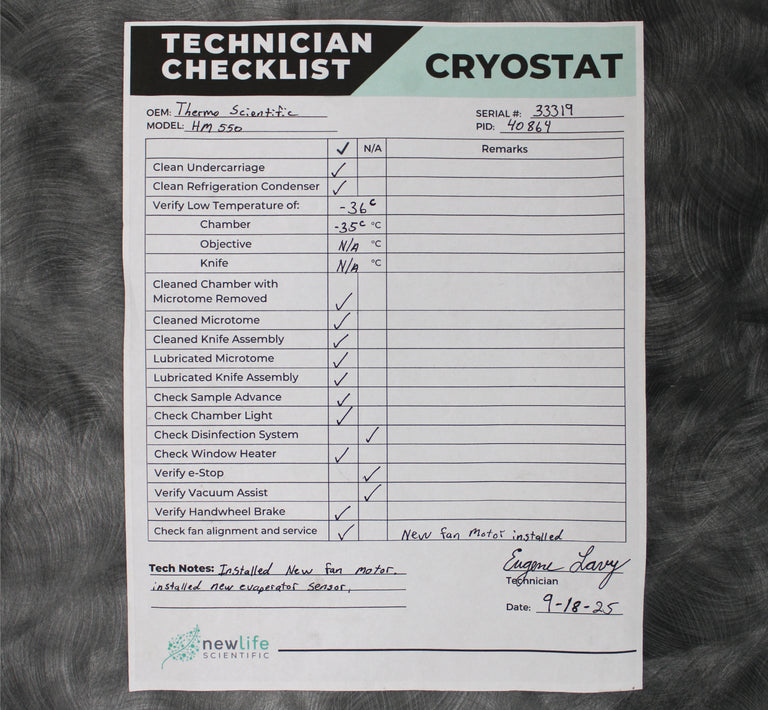 TECHNICIAN CHECKLIST
CRYOSTAT
OEM: Thermo Scientific
MODEL: HM 550
SERIAL #: 33319
PID: 40864
✓ N/A Remarks
Clean Undercarriage ✓
Clean Refrigeration Condenser ✓
Verify Low Temperature of: -36 c
Chamber -35 c °C
Objective N/A °C
Knife N/A °C
Cleaned Chamber with
Microtome Removed ✓
Cleaned Microtome ✓
Cleaned Knife Assembly ✓
Lubricated Microtome ✓
Lubricated Knife Assembly ✓
Check Sample Advance ✓
Check Chamber Light ✓
Check Disinfection System ✓
Check Window Heater ✓
Verify e-Stop ✓
Verify Vacuum Assist ✓
Verify Handwheel Brake ✓
Check fan alignment and service ✓ New fan motor installed
Tech Notes: Installed New fan motor.
installed new evaporator sensor.
Eugene Lavy
Technician
Date: 9-18-25
newlife
SCIENTIFIC